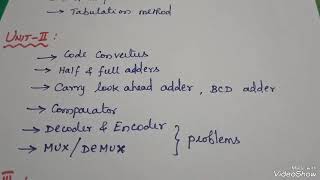 → Tabulation method
UNIT-II :
→ Code Convertus
→ Half & full adders
→ Carry look ahead adder, BCD adder
→ Comparator
→ Decoder & Encoder
→ MUX/DeMUX } problems
III :
Made with
VideoShow